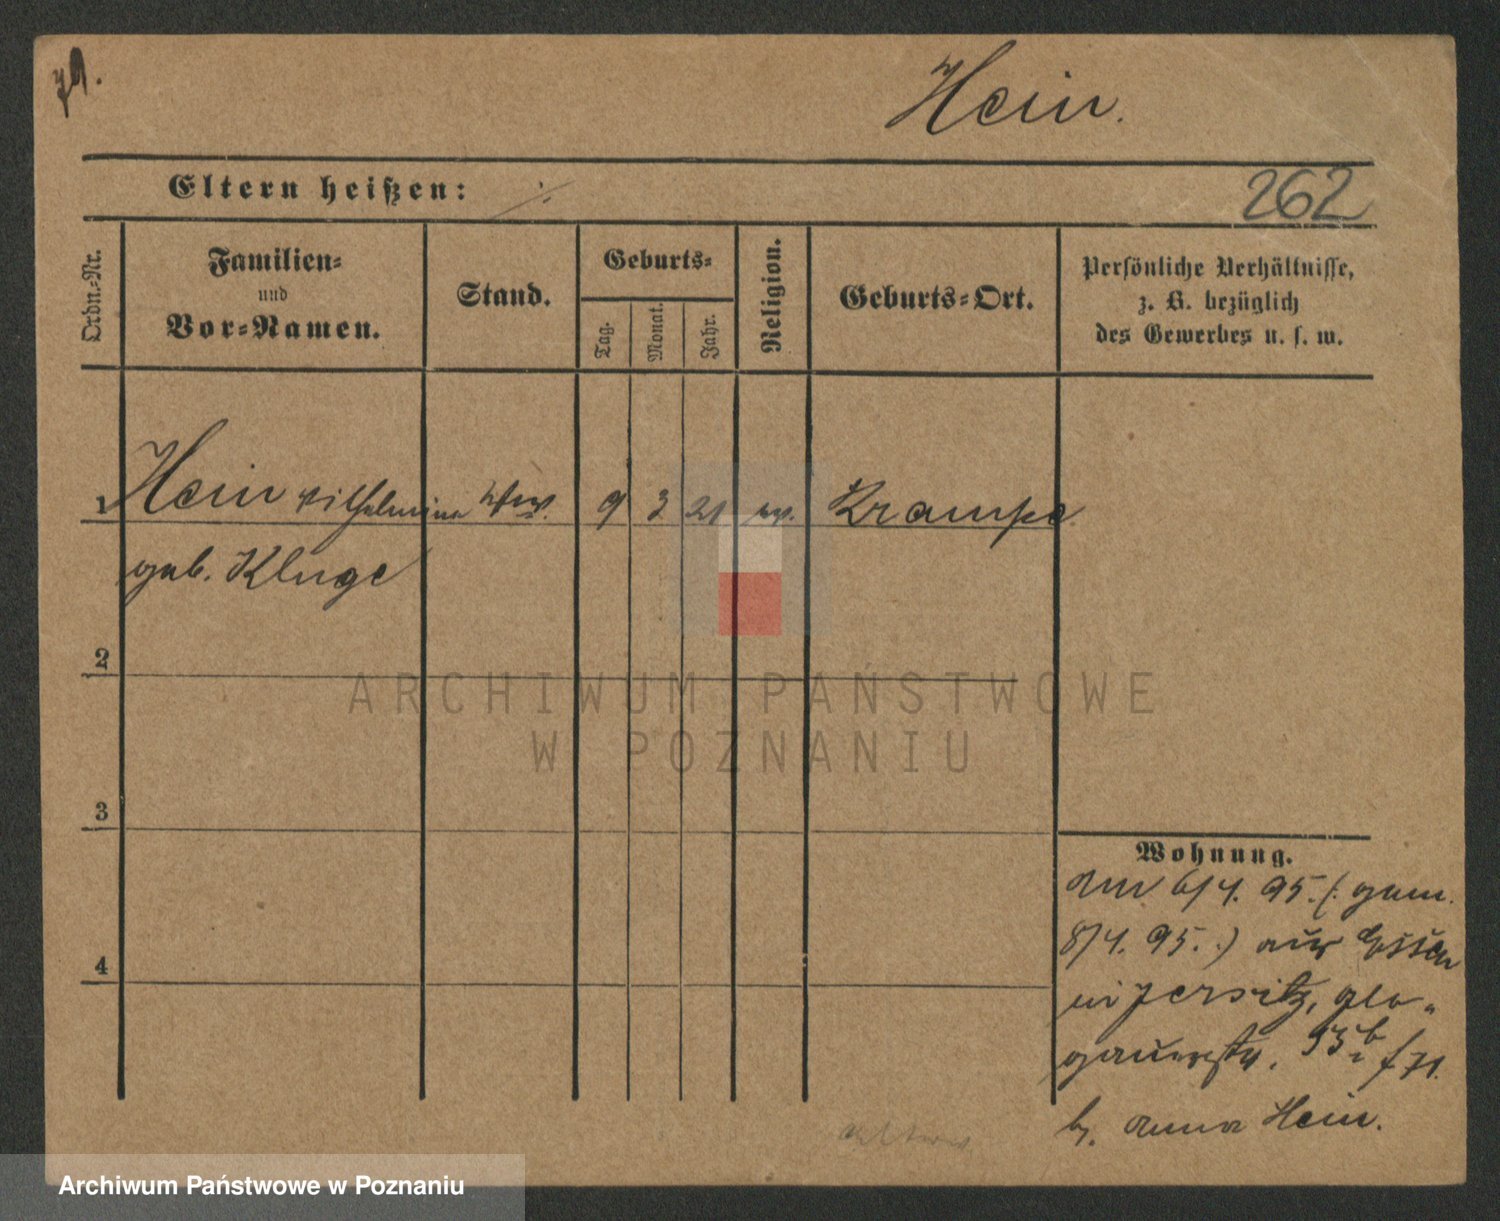 71.
Hein.
Eltern heißen: ./.
262
Ordn.-Nr.
Familien-
und
Vor-Namen.
Stand.
Geburts-
Tag.
Monat.
Jahr.
Religion.
Geburts-Ort.
Persönliche Verhältnisse,
z. B. bezüglich
des Gewerbes u. s. w.
1 Hein Wilhelmine Wwe. 9 3 21 ev. Krampe
geb. Kluge
2
3
4
Wohnung.
am 6/4. 95. (: gem.
8/4. 95. :) aus Essen
in Jersitz, Glo-
gauerstr. 93b f 71.
b. Anna Hein.
ARCHIWUM PAŃSTWOWE
W POZNANIU
Archiwum Państwowe w Poznaniu